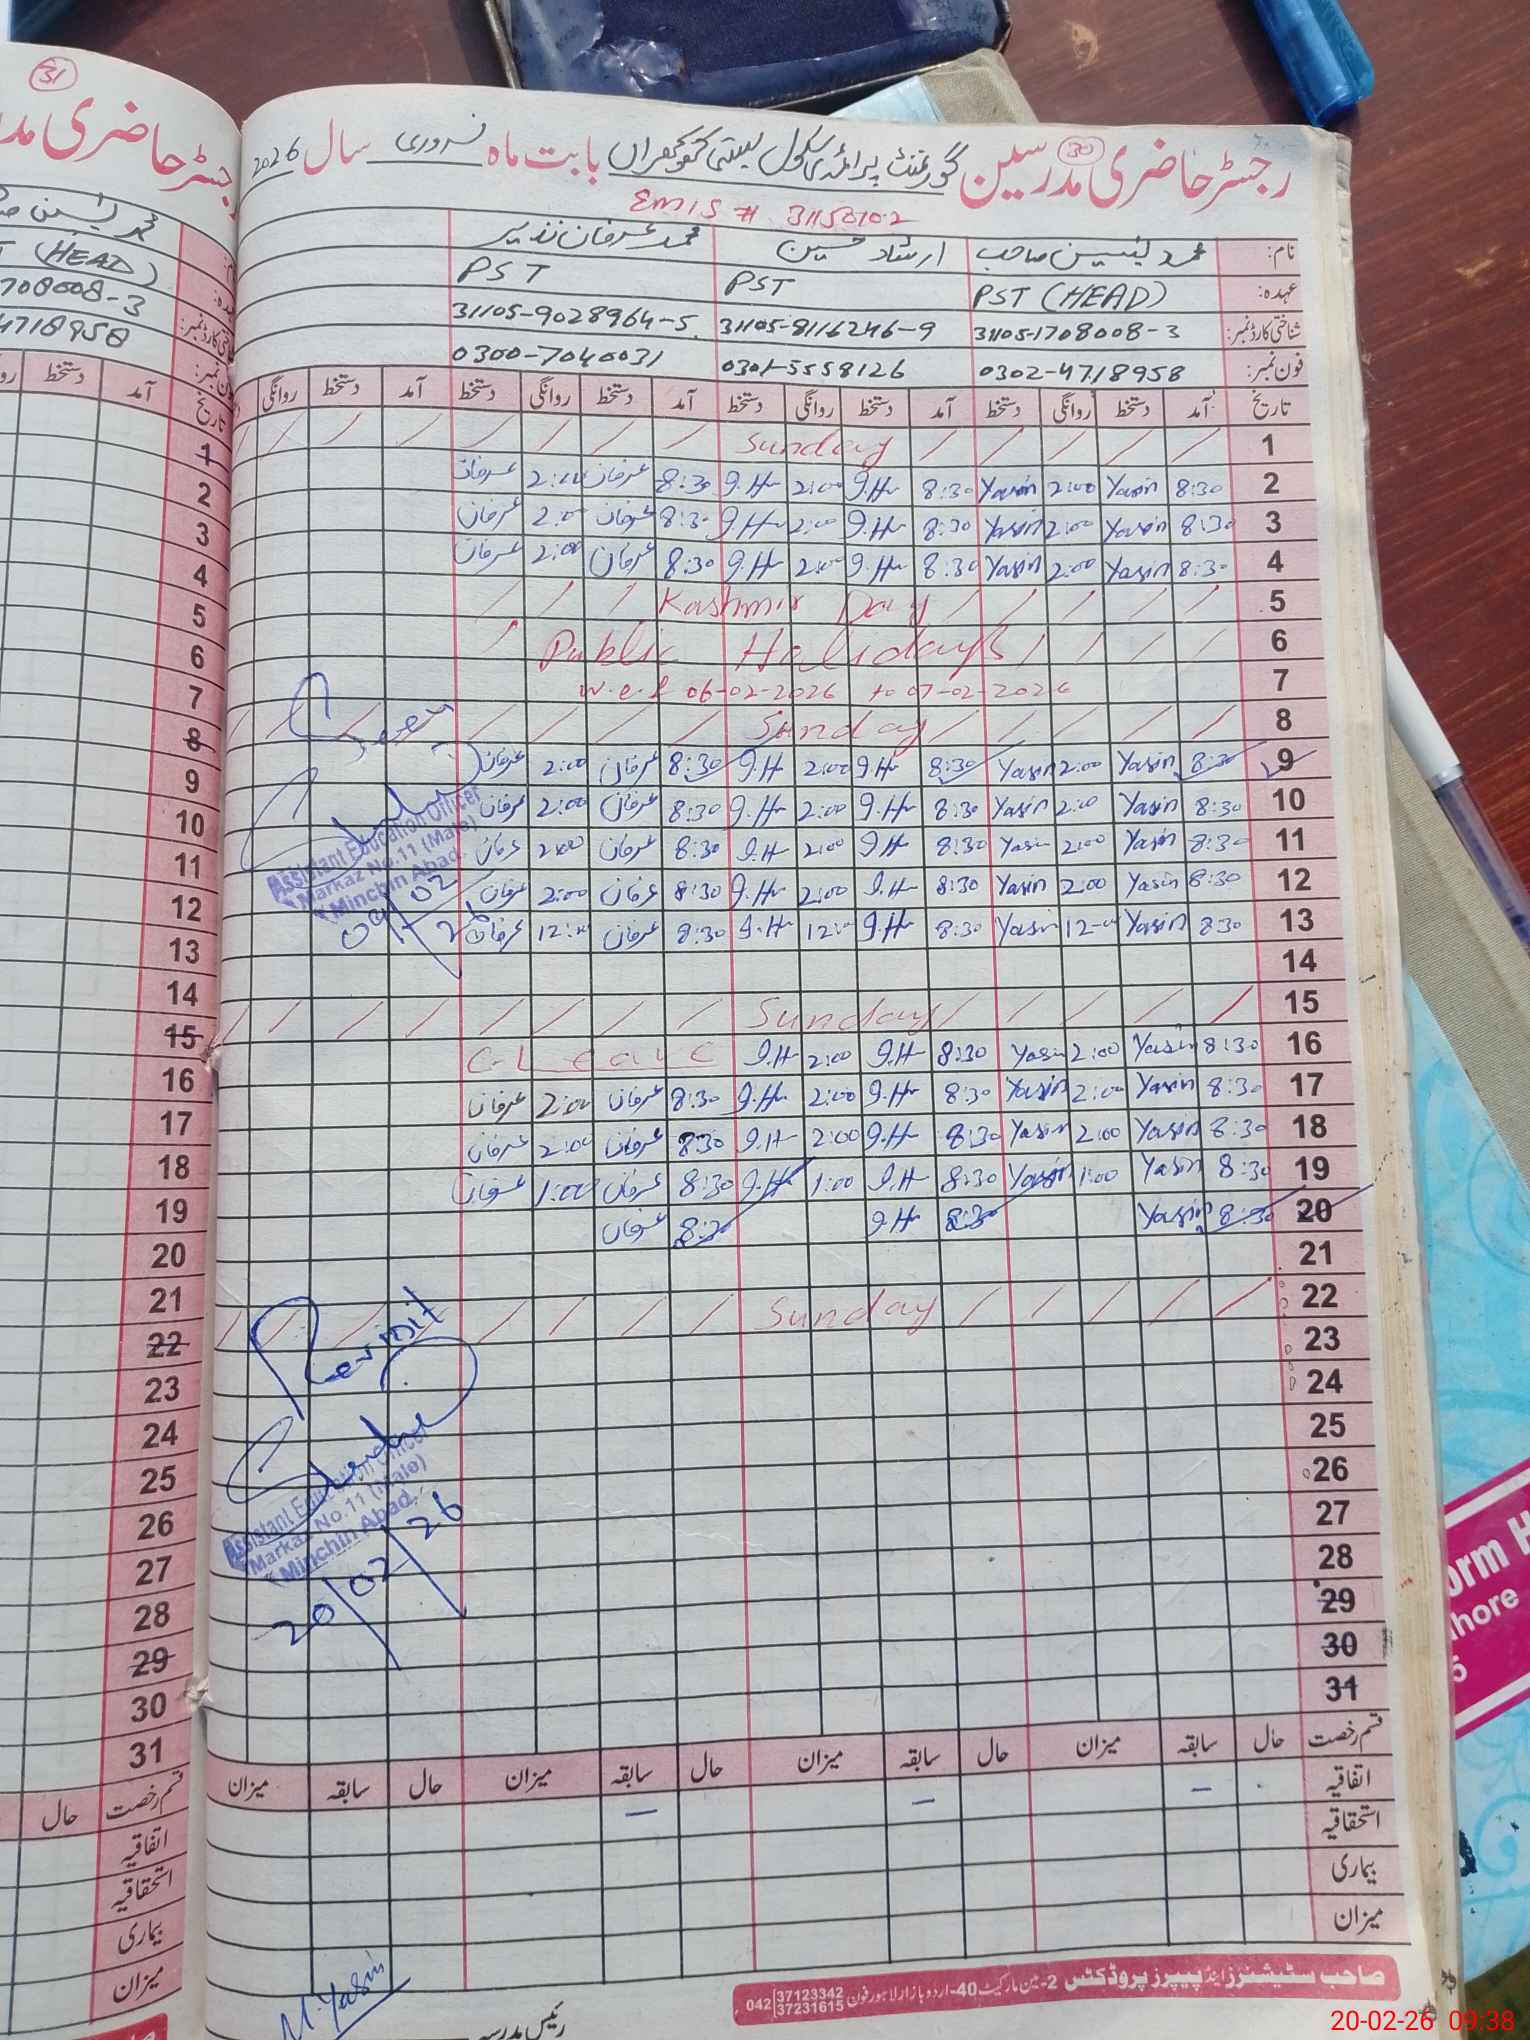 رجسٹر حاضری مدرسین گورنمنٹ پرائمری سکول بستی بابت ماہ فروری سال 2026
30
EMIS # 31150102
نام: محمد یٰسین صاحب ارشاد حسین محمد عرفان نذیر
عہدہ: PST (HEAD) PST PST
شناختی کارڈ نمبر: 31105-1708008-3 31105-8116246-9 31105-9028964-5
فون نمبر: 0302-4718958 0301-5558126 0300-7040031
تاریخ آمد دستخط روانگی دستخط آمد دستخط روانگی دستخط آمد دستخط روانگی دستخط آمد دستخط روانگی
1 Sunday
2 8:30 Yasin 2:00 Yasin 8:30 I.H 2:00 I.H 8:30 عرفان 2:00 عرفان
3 8:30 Yasin 2:00 Yasin 8:30 I.H 2:00 I.H 8:30 عرفان 2:00 عرفان
4 8:30 Yasin 2:00 Yasin 8:30 I.H 2:00 I.H 8:30 عرفان 2:00 عرفان
5 Kashmir Day
6 Public Holidays
7 w.e.f 06-02-2026 to 07-02-2026
8 Sunday
9 8:30 Yasin 2:00 Yasin 8:30 I.H 2:00 I.H 8:30 عرفان 2:00 عرفان
10 8:30 Yasin 2:00 Yasin 8:30 I.H 2:00 I.H 8:30 عرفان 2:00 عرفان
11 8:30 Yasin 2:00 Yasin 8:30 I.H 2:00 I.H 8:30 عرفان 2:00 عرفان
12 8:30 Yasin 2:00 Yasin 8:30 I.H 2:00 I.H 8:30 عرفان 2:00 عرفان
13 8:30 Yasin 12:00 Yasin 8:30 I.H 12:00 I.H 8:30 عرفان 12:00 عرفان
14
15 Sunday
16 8:30 Yasin 2:00 Yasin 8:30 I.H 2:00 I.H C-Leave
17 8:30 Yasin 2:00 Yasin 8:30 I.H 2:00 I.H 8:30 عرفان 2:00 عرفان
18 8:30 Yasin 2:00 Yasin 8:30 I.H 2:00 I.H 8:30 عرفان 2:00 عرفان
19 8:30 Yasin 1:00 Yasin 8:30 I.H 1:00 I.H 8:30 عرفان 1:00 عرفان
20 8:30 Yasin 8:30 I.H 8:30 عرفان
21
22 Sunday
23
24
25
26
27
28
29
30
31
Seen
Assistant Education Officer
Markaz No.11 (Male)
Minchin Abad.
09/02/26
Assistant Education Officer
Markaz No.11 (Male)
Minchin Abad.
20/02/26
قسم رخصت حال سابقہ میزان حال سابقہ میزان حال سابقہ میزان
اتفاقیہ - - -
استحقاقیہ
بیماری
میزان
M.Yasin
رئیس مدرسہ
صاحب سٹیشنرز اینڈ پیپرز پروڈکٹس 2-مین مارکیٹ 40-اردو بازار لاہور فون 042 37123342
37231615
31
رجسٹر حاضری
محمد یٰسین
(HEAD)
708008-3
4718958
تاریخ آمد دستخط
1
2
3
4
5
6
7
8
9
10
11
12
13
14
15
16
17
18
19
20
21
22
23
24
25
26
27
28
29
30
31
قسم رخصت حال
اتفاقیہ
استحقاقیہ
بیماری
میزان
orm H
hore
5
20-02-26 09:38